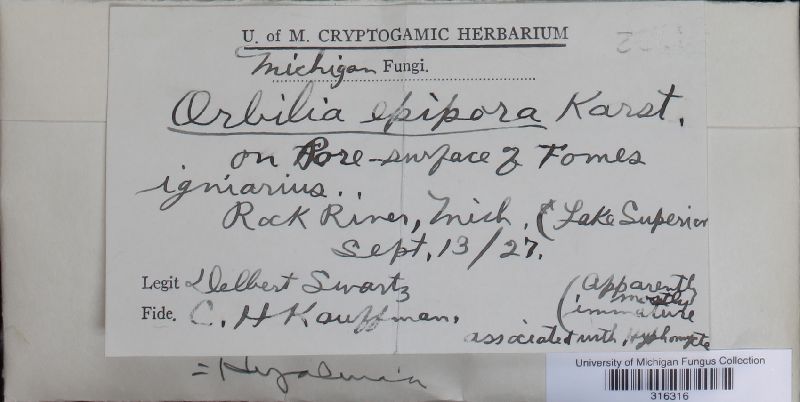 U. of M. CRYPTOGAMIC HERBARIUM
Michigan Fungi.
Orbilia epipora Karst.
on Pore-surface of Fomes
igniarius..
Rock River, Mich. (Lake Superior
Sept. 13/27.
Legit Delbert Swartz
Fide. C. H Kauffman.
(apparently
mostly
immature
associated with Hyphomycete
=
University of Michigan Fungus Collection
316316